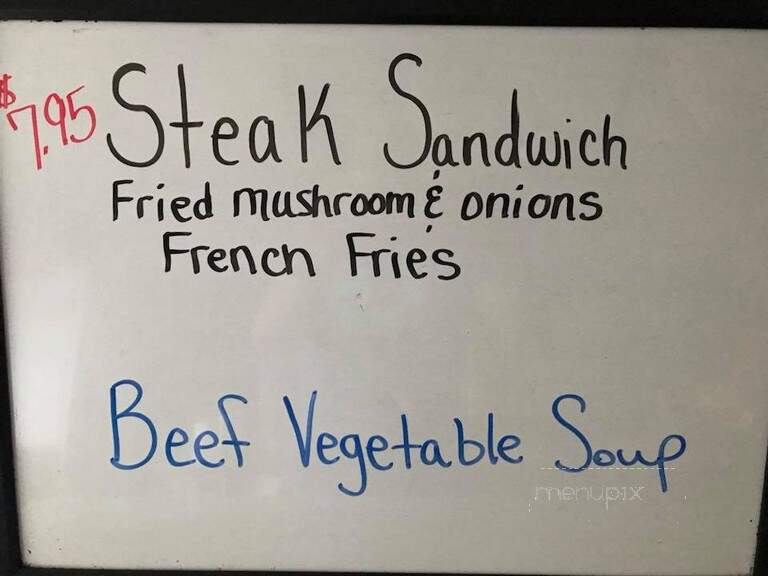 $7.95 Steak Sandwich
Fried mushroom & onions
French Fries
Beef Vegetable Soup
menupix